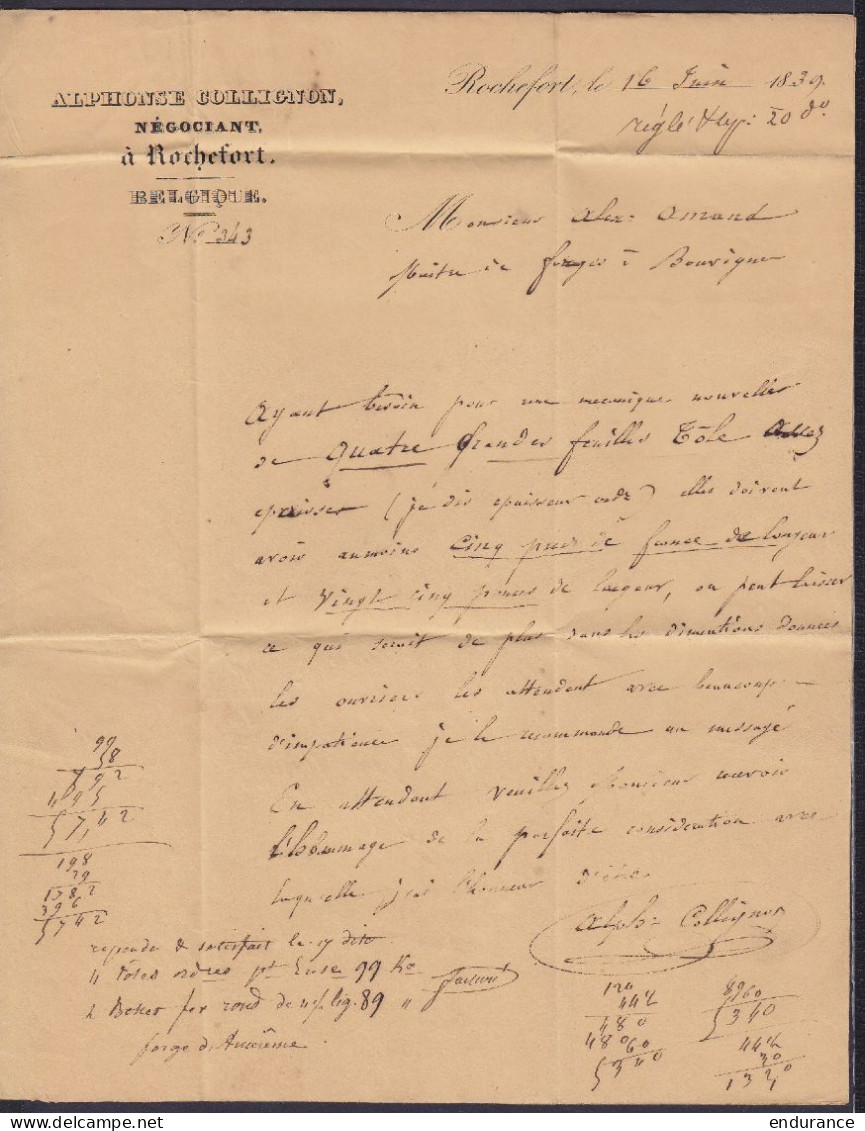 ALPHONSE COLLIGNON,
NÉGOCIANT,
à Rochefort.
BELGIQUE.
N° 343
Rochefort, le 16 Juin 1839.
réglé &  20 do
Monsieur Alex: Amand
Maitre de forges à Bouvigne
Ayant besoin pour une mecanique nouvelle
de Quatre Grandes feuilles Tôle assez
epaisses (je dis epaisseur ordre) elles doivent
avoir aumoins Cinq pieds de france de longeur
et Vingt cinq pouces de largeur, on peut laisser
ce qui serait de plus dans les dimentions données
les ouvriers les attendent avec beaucoup
d'impatience je le recommande au messagé
En attendant veuillez Monsieur recevoir
l'hommage de la parfaite considération avec
laquelle j'ai l'honneur d'être.
Alph: Collignon
99
58
792
495
57,42
198
29
1782
396
5742
repondu & satisfait le 17 dito
4 Tôles ordres pt Ense 99 Ko
2 Bottes fer rond de 4 1/2 lig. 89 "
facturé
forge d'Anserême
120
44 1/2
480
480
60
5340
8960
5340
44 1/2
30
1320
endurance